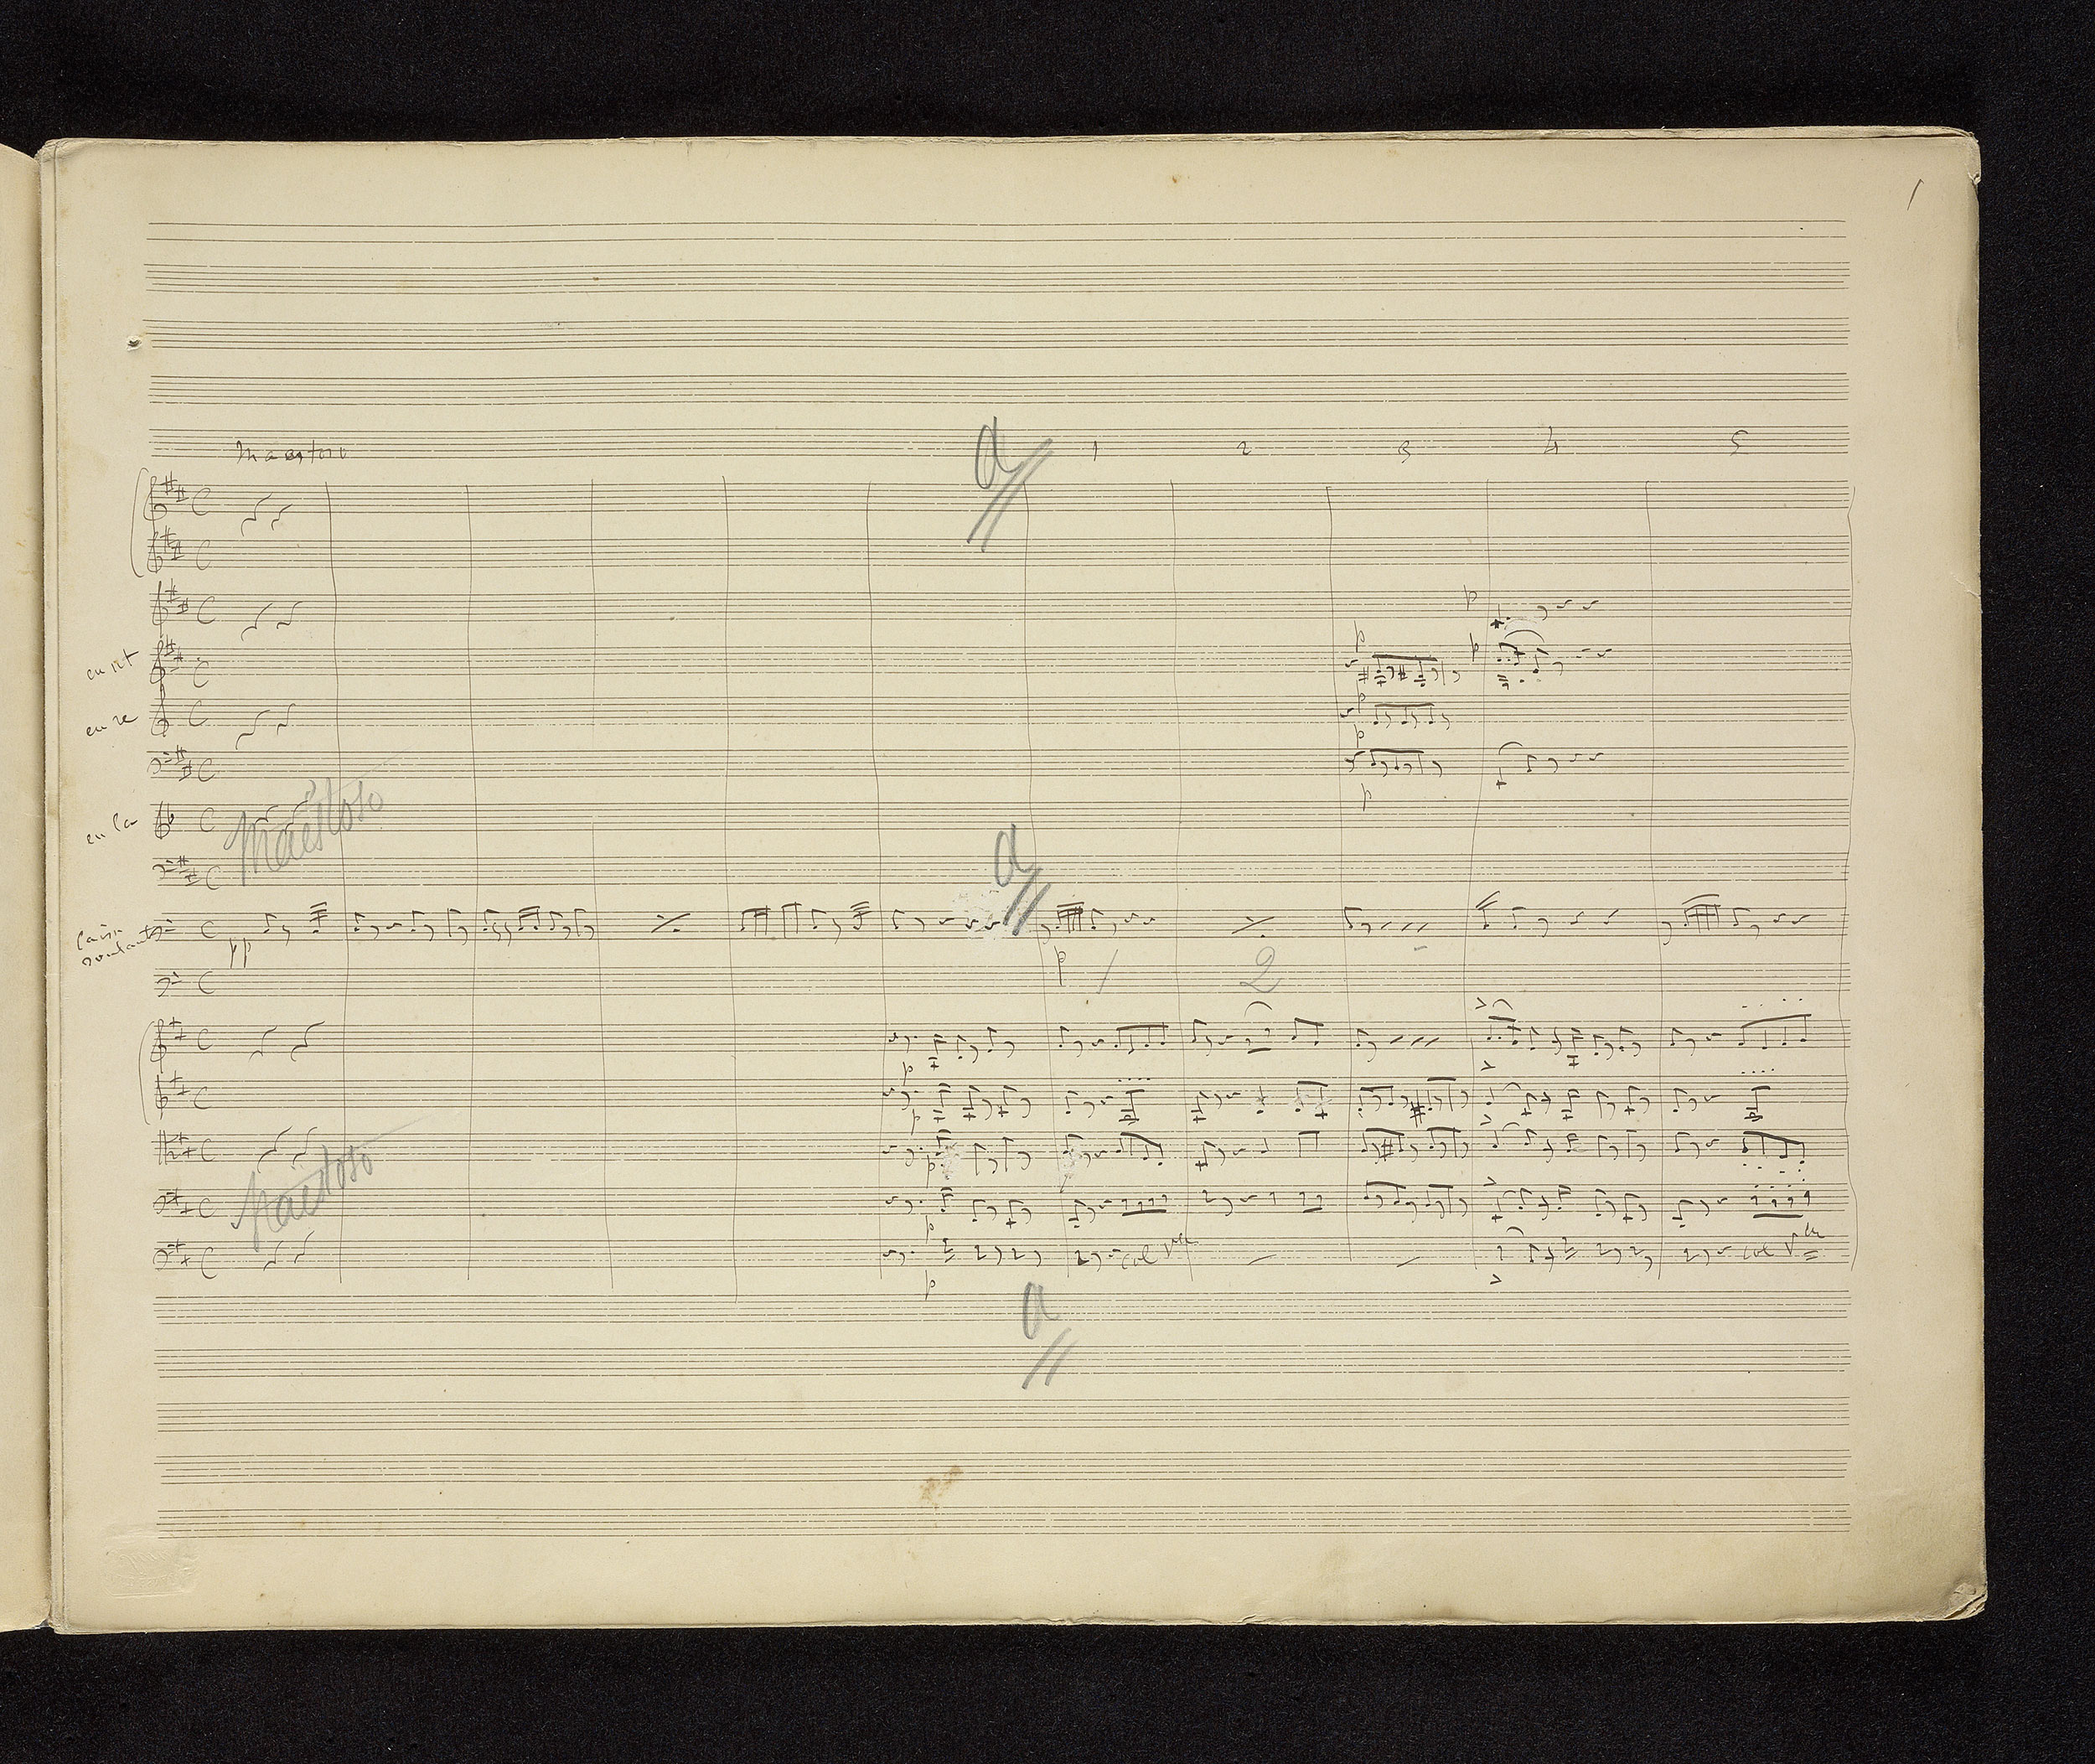 1
a
Maestoso 1 2 3 4 5
p
en ut p p
en re p
p
p
en la Maestoso
a
Caisse roulante pp
p 1 2
p
p
p
Maestoso p
col Vlle col Vlle
p
a